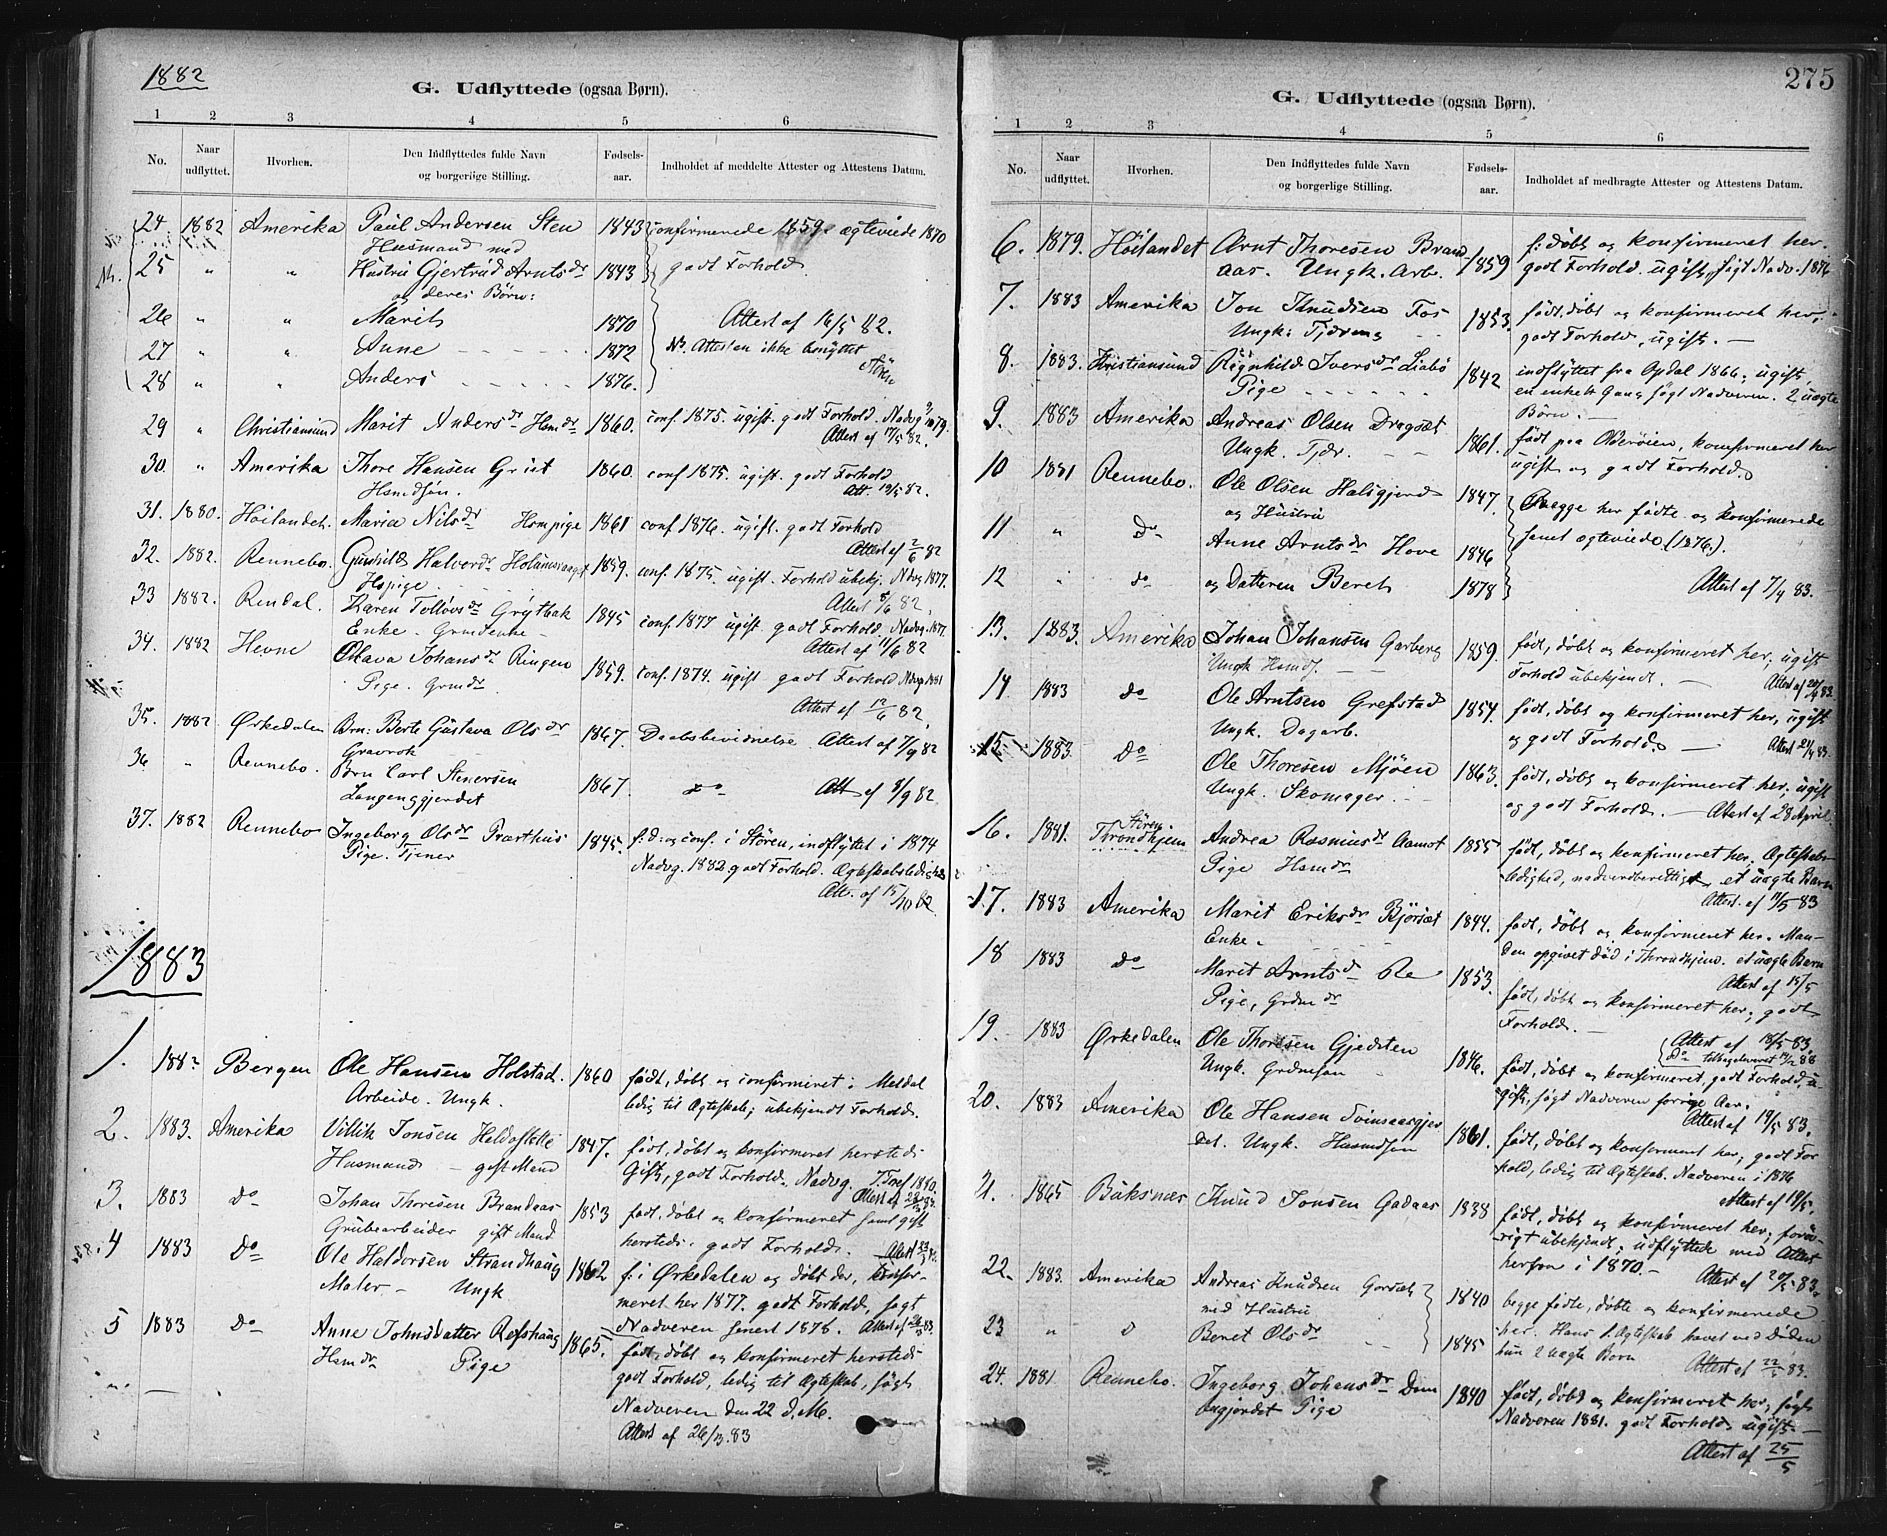 1882
G. Udflyttede (ogsaa Børn).
1 2 3 4 5 6
No. Naar udflyttet. Hvorhen. Den Indflyttedes fulde Navn og borgerlige Stilling. Fødsels-aar. Indholdet af meddelte Attester og Attestens Datum.
24 1882 Amerika Paul Andersen Sten 1843 confirmerede 1859. ægteviede 1870
Husmand med
25 " " Hustru Gjertrud Arntsdr 1843 godt Forhold
og deres Børn:
26 " " Marit 1870 Attest af 16/5 82.
27 " " Anne 1872 NB. Attesten ikke benyttet
28 " " Anders 1876.
29 " Christiansund Marit Andersdr Hsmdr 1860. conf. 1875. ugift. godt Forhold. Nadvg
Attest af 17/5 82.
30. " Amerika Thore Hansen Grut 1860. conf 1875. ugift. godt Forhold
Hsmdsøn. Att. 19/5 82.
31. 1880. Høilandet. Maria Nilsdr Hsmpige 1861 conf 1876. ugift. godt Forhold
Attest af 2/6 82
32. 1882. Rennebo. Gunhild Halvordr 1859. conf. 1875. ugift. Forhold ubekj. Nadvg 1877.
Hspige Attest 5/6 82.
33 1882. Rendal. Karen Tollovsdr Grytbak 1845 conf. 1877 ugift. godt Forhold. Nadvg. 1877.
Enke. Attest af 11/6 82
34. 1882 Hevne Olava Johansdr Ringen 1859. conf. 1874. ugift godt Forhold Nadvg 1881
Pige. Grmdr Attest af 12/6 82.
35. 1882 Ørkedalen Brn: Berte Gustava Olsdr 1867. Daabsbevidnelse Attest af 7/9 82
Gravrok
36 " Rennebo. Børn Carl Stenersen 1867. do Att af 8/9 82
Langenggjerdet
37. 1882 Rennebo Ingeborg Olsdr Præsthus 1845. f: D: og conf. i Støren, indflyttet i 1874
Pige. Tjener Nadvg. 1882 godt Forhold. Ægteskabsledig
Att. af 15/10 82.
1883
1. 1882 Bergen Ole Hansen Holstad. 1860 født, døbt og confirmeret i Meldal
Arbeide. Ungk. ledig til Ægteskab; ubekjendt Forhold.
2. 1883. Amerika Villik Jonsen Haldostette 1847. født, døbt og konfirmeret herstedt
Husmand – gift Mand Gift, godt Forhold. Nadvg. 1880.
3. 1883 do Johan Thoresen Brandaas 1853 født, døbt og konfirmeret samt gift
Grubearbeider gift Mand herstedt. godt Forhold.
4 1883 do Ole Haldorsen Strandhaug 1862 f: i Ørkedalen og døbt der, konfir-
Maler – Ungk meret her 1877. godt Forhold, søgt
5 1883 do Anne Johnsdatter Refshaug 1865. Nadveren senest 1878. Attest af 26/3 83.
Hsmdr Pige født, døbt og konfirmeret herstedt
godt Forhold, ledig til Ægteskab, søgt
Nadveren den 22 d. M.
Attest af 26/3. 83
275
G. Udflyttede (ogsaa Børn).
1 2 3 4 5 6
No. Naar udflyttet. Hvorhen. Den Indflyttedes fulde Navn og borgerlige Stilling. Fødsels-aar. Indholdet af medbragte Attester og Attestens Datum.
6. 1879. Høilandet Arnt Thoresen Brand- 1859 f: døbt og konfirmeret her.
aas. Ungk. Arb. godt Forhold ugift, søgt Nadv. 1876
7. 1883 Amerika Jon Knudsen Fos 1853. født, døbt og konfirmeret her,
Ungk: Tjdreng godt Forhold, ugift. –
8. 1883. Khristiansund Ragnhild Iversdr Liabø 1842 indflyttet fra Opdal 1866; ugift
Pige en enkelt Gang søgt Nadveren. 2 uægte
9. 1883 Amerika Andreas Olsen Dragsæt 1861. Børn. –
Ungk. Tjdr. født paa Olderøien, konfirmeret her
ugift og godt Forhold.
10 1881 Rennebo. Ole Olsen Halsgjerd 1847. begge her fødte og konfirmerede
og Hustru
11 " do Anne Arntsdr Hove 1846 samt ægteviede (1876.).
12 " do og Datteren Beret 1878 Attest af 7/4 83.
13. 1883. Amerika Johan Johansen Garberg 1859. født, døbt og konfirmeret her, ugift
Ungk Hsmds. Forhold ubekjendt. –
14. 1883 do Ole Arntsen Grefstad 1854. født, døbt og konfirmeret her, ugift
Ungk. Dagarb. og godt Forhold –
15 1883. do Ole Thoresen Mjøen 1863. født, døbt og konfirmeret her, ugift
Ungk. Skomager. og godt Forhold. – Attest af 28 April
16. 1881. Støren Throndhjem Andrea Rasmusdr Aamot 1855 født, døbt og konfirmeret her. Ægteskabs-
Pige Hsmdr ledighed, nadverdberettiget, et uægte Barn
Attest. af 11/5 83
17. 1883 Amerika Marit Eriksdr Bjørsæt 1844. født, døbt og konfirmeret her. Man-
Enke. den opgivet død i Throndhjem. et uægte Barn
18 1883 do Marit Arntsdr Re 1853. Attest af 15/5
Pige, Grdmdr født, døbt og konfirmeret her; godt
Forhold. –
19. 1883 Ørkedalen Ole Thoresen Gjedsten 1846. Attest af 18/5 83
do tilbageleveret
Ungk. Grdmsøn født, døbt og konfirmeret, godt Forhold, u-
gift, søgt Nadveren forrige Aar.
20. 1883 Amerika Ole Hansen Svinsaasgjer 1861. Attest af 19/5 83.
det. Ungk. Husmdsøn født, døbt og konfirmeret her, godt For-
hold, ledig til Ægteskab. Nadveren i 1876
21. 1865 Buksnæs Knud Jonsen Gadaas 1838 Attest af 19/5.
født, døbt og konfirmeret her; forøv-
rigt ubekjendt; udflyttede med Attest
herfra i 1870. –
22. 1883. Amerika Andreas Knudsen Gorsæt 1840 Attest af 20/5 83.
med Hustru begge fødte, døbte og konfirmerede
23 " d Beret Olsdr 1845 her. Hans 1. Ægteskab hævet ved Døden
hun 2 uægte Børn Attest af 22/5 83.
24. 1881 Rennebo. Ingeborg Johansdr Dum 1840 født, døbt og konfirmeret her, søgt
engjerdet Pige Nadveren 1881. godt Forhold, ugift. –
Attest af 25/5